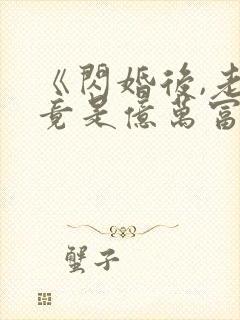 《閃婚後,老
竟是億萬富
蟹子